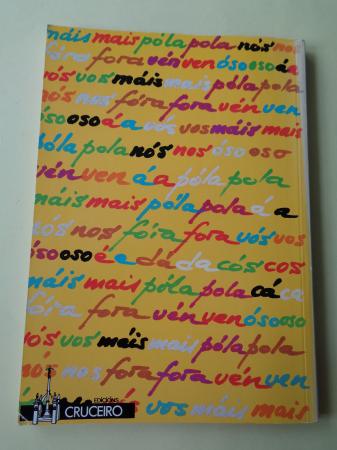 máis mais póla pola nós nos
fóra fora vén ven óso oso á a
vós vos máis mais póla pola
nós nos fóra fora vén ven
óso oso á a vós vos máis mais
póla pola nós nos óso oso
vén ven á a póla pola
máis mais póla pola á a
nós nos fóra fora vós vos
óso oso é e da da cós cos
máis mais póla pola cá ca
fóra fora vén ven óso oso
vós vos máis mais póla pola
nós nos fora fora vén ven
EDICIÓNS
CRUCEIRO
vós vos máis mais